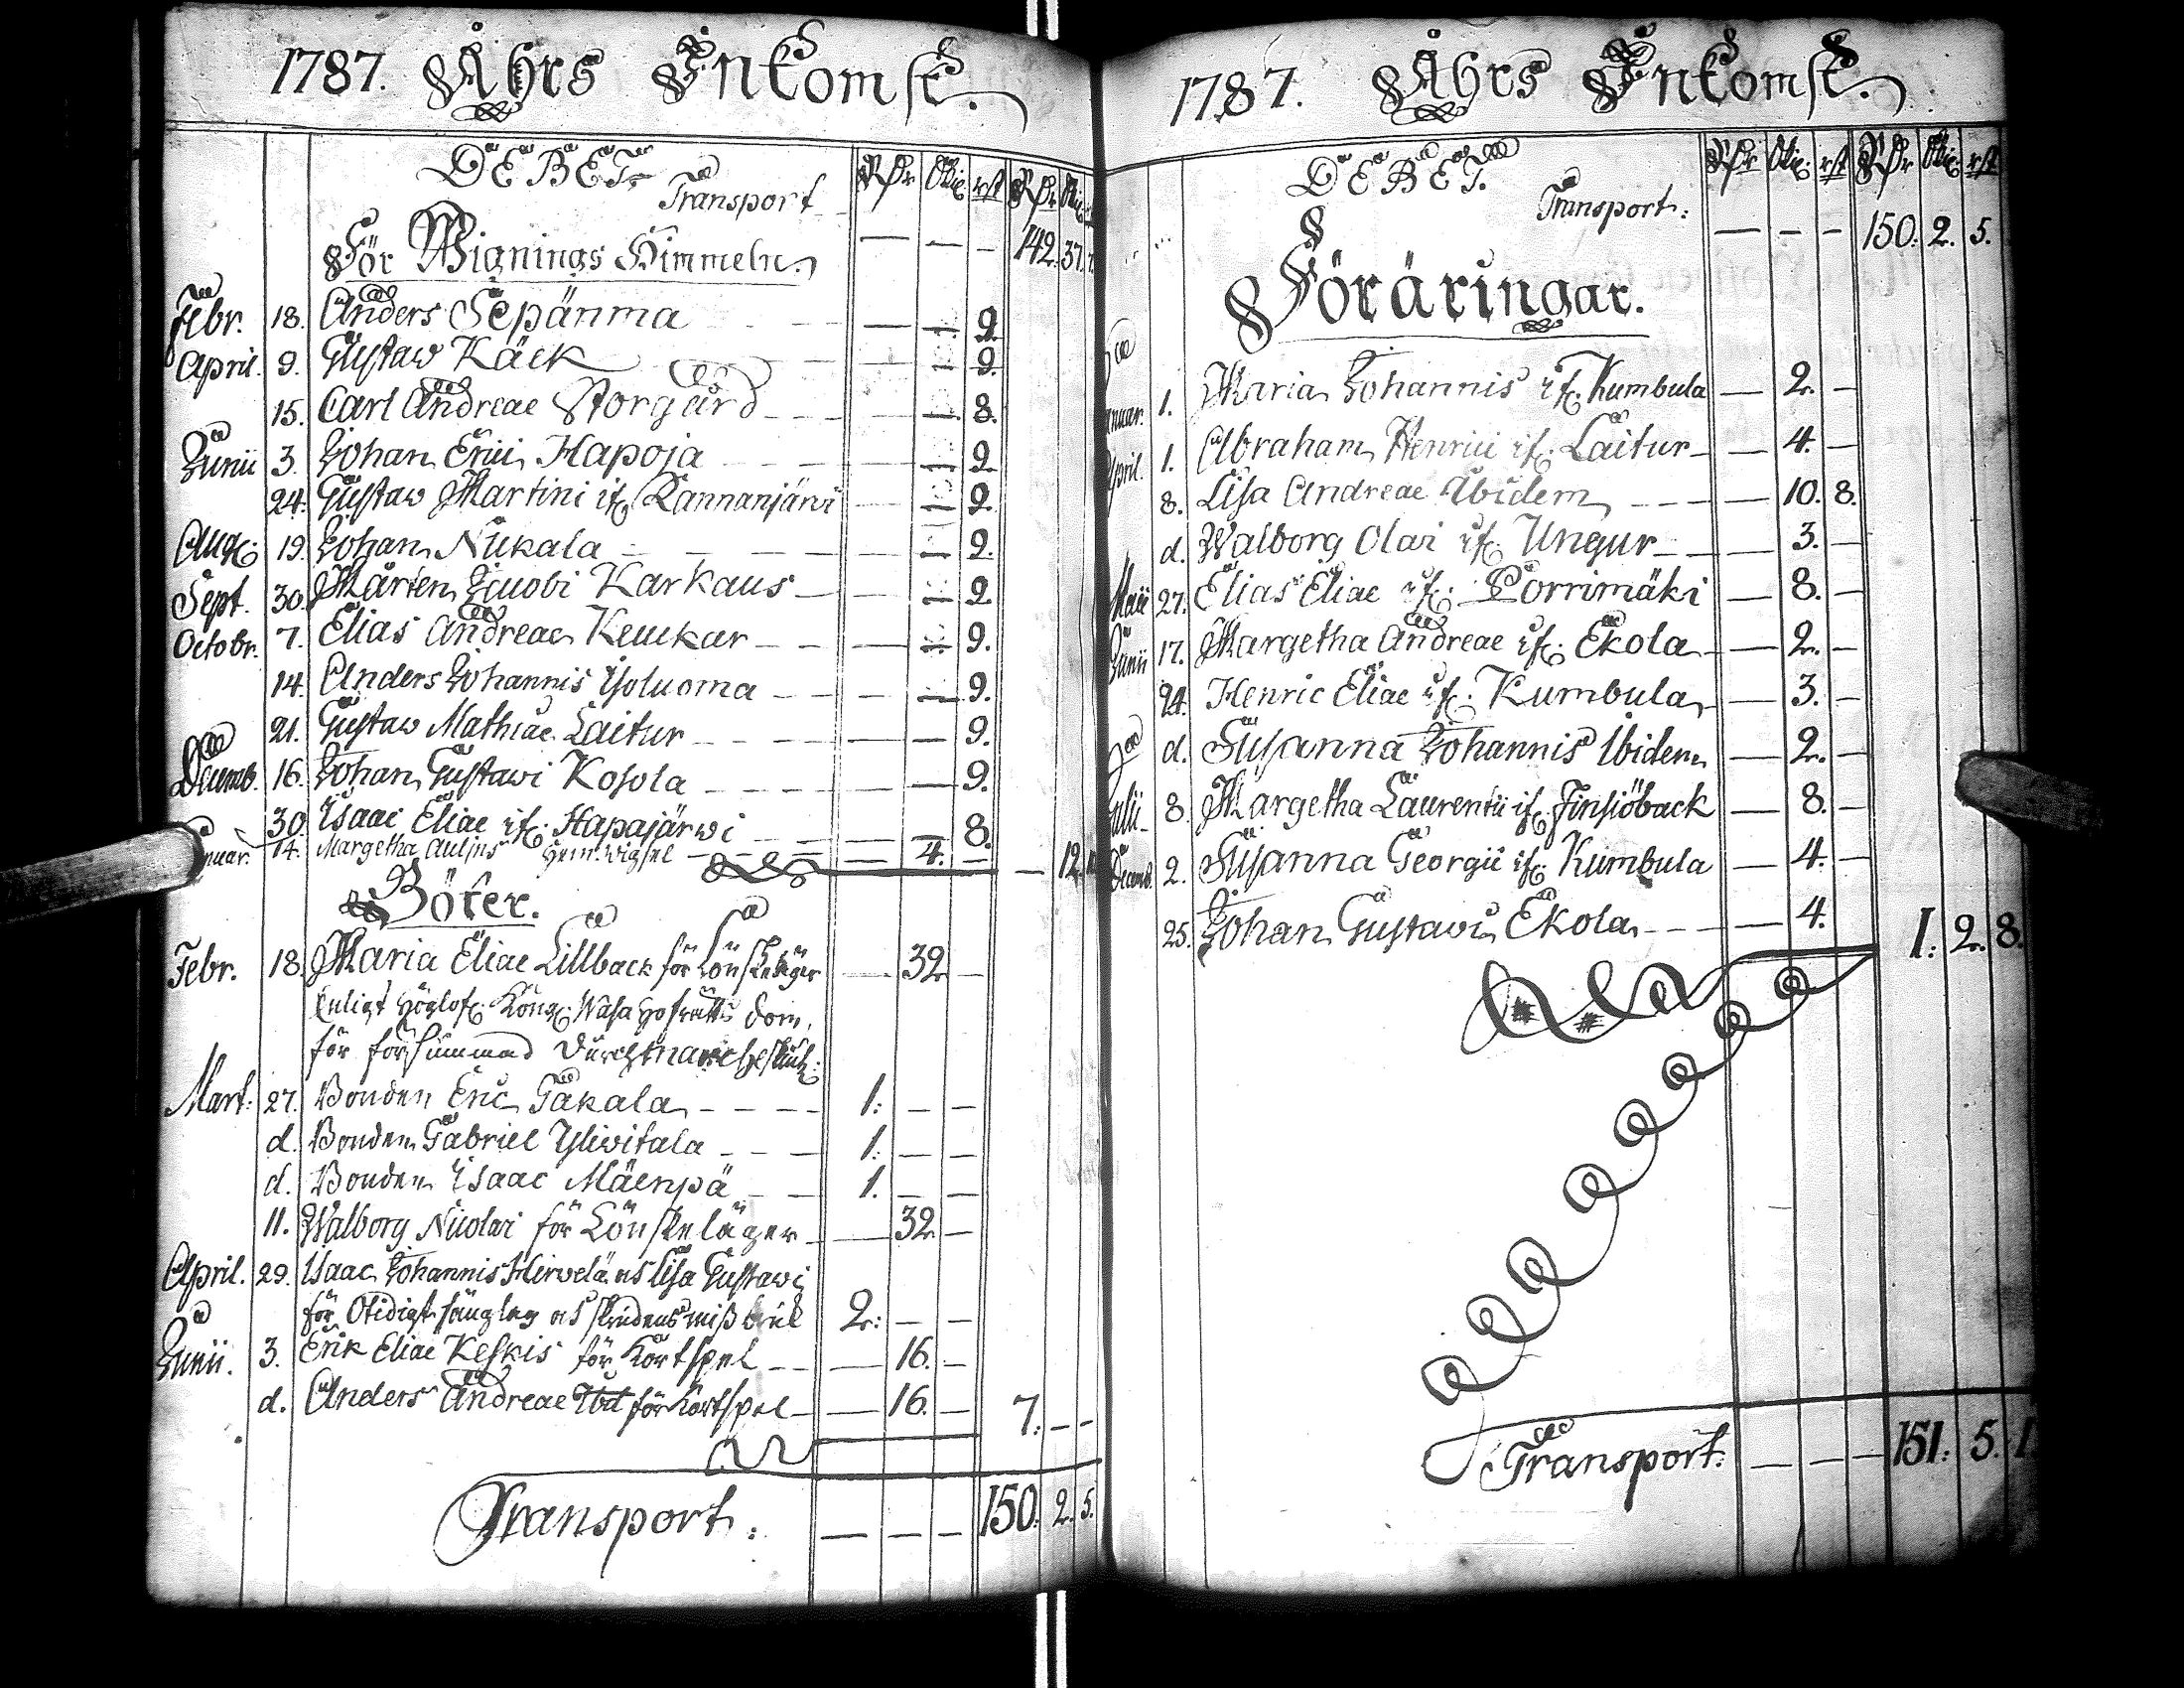 1787. Åhrs Inkomst.
DEBET. RDr Skil. rst RDr Skil.
Transport
För Wignings Himmeln. — — — 142. 37.
Febr. 18. Anders Sepänma — — 9.
April. 9. Gustaw Käck — — 9.
15. Carl Andreae Storgård — — 8.
Junii 3. Johan Erici Hapoja — — 9.
24. Gustaw Martini if. Kannanjärvi — — 9.
Aug. 19. Johan Nickala — — 9.
Sept. 30. Mårten Jacobi Karkaus — — 9.
Octobr. 7. Elias Andreae Keuckar — — 9.
14. Anders Johannis Yoluoma — — 9.
21. Gustaw Mathiae Laitur — — 9.
Decemb. 16. Johan Gustawi Kosola — — 9.
30. Isaac Eliae if. Hapajärwi — — 8.
nuar. 14. Margetha — 4. — — 12.
Böter.
Febr. 18. Maria Eliae Lillback för Lönskeläger — 32 —
Enligt Höglofl. Kongl. Wasa Hofrätts Dom,
för försummad
Mart. 27. Bonden Eric Takala 1. — —
d. Bonden Gabriel Yliwitala 1. — —
d. Bonden Isaac Mäenpä 1. — —
11. Walborg Nicolai för Lönskeläger — 32 —
April. 29. Isaac Johannis Hirvelä och Lisa Gustawi
för Otidigt sänglag och 2. — —
Junii. 3. Erik Eliae Keskis för Kortspel — 16. —
d. Anders Andreae Ibd för Kortspel — 16. — 7. — —
Transport. — — — 150. 2. 5.
1787. Åhrs Inkomst.
DEBET. RDr Skil. rst RDr Skil. rst
Transport. — — — 150. 2. 5.
Föräringar.
anuar. 1. Maria Johannis if. Kumbula — 2. —
pril. 1. Abraham Henrici if. Laitur — 4. —
8. Lisa Andreae Ibidem — 10. 8.
d. Walborg Olai if. Ungur — 3. —
Maii 27. Elias Eliae if. Porrimäki — 8. —
Junii 17. Margetha Andreae if. Ekola — 2. —
24. Henric Eliae if. Kumbula — 3. —
d. Susanna Johannis Ibidem — 2. —
ulii 8. Margetha Laurentii if. Finsiöback — 8. —
Decemb. 2. Susanna Georgii if. Kumbula — 4. —
25. Johan Gustavi Ekola — 4. 1. 2. 8.
Transport. — — — 151. 5. 1